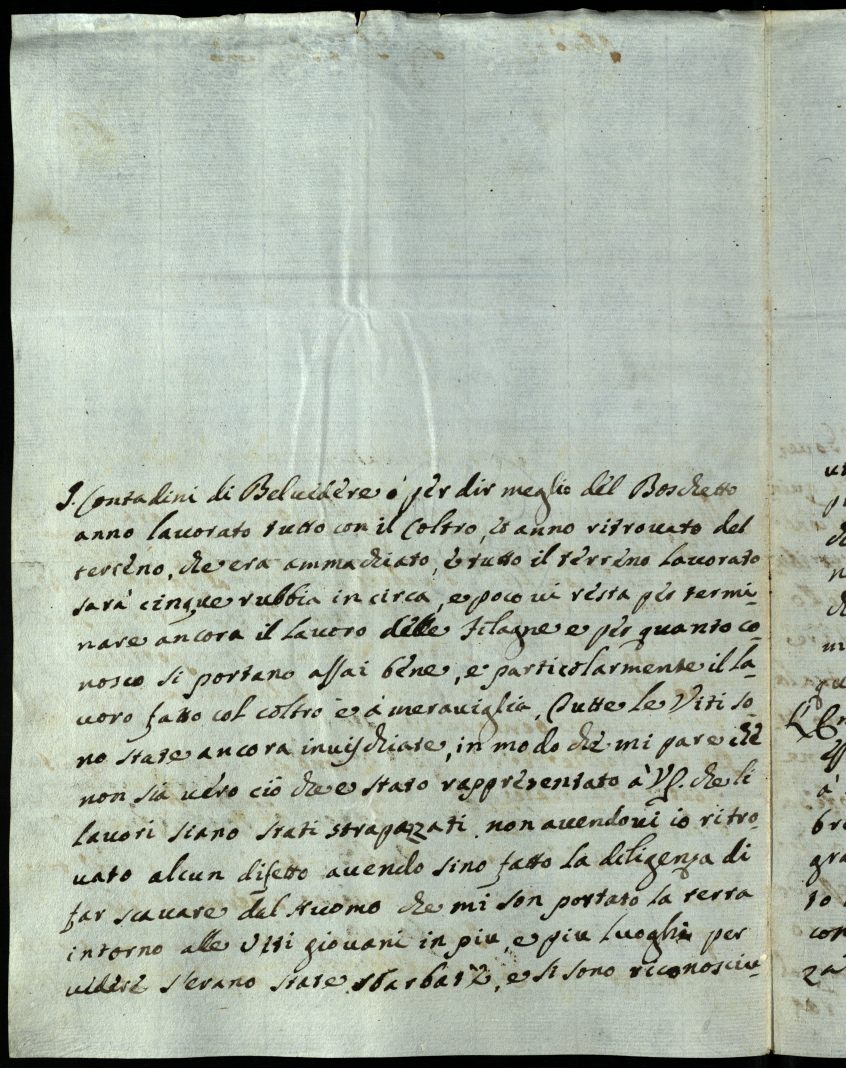 I Contadini di Belvidere ò per dir meglio del Boschetto
anno lavorato tutto con il Coltro, et anno ritrovato del
terreno, che era ammachiato, è tutto il terreno lavorato
sarà cinque rubbia in circa, e poco vi resta per termi-
nare ancora il lavoro delle filagne e per quanto co-
nosco si portano assai bene, e particolarmente il la-
voro fatto col coltro è à meraviglia, Tutte le Viti so-
no state ancora invischiate, in modo che mi pare che
non sia vero ciò che e stato rappresentato à VS. che li
lavori siano stati strapazzati non avendovi io ritro-
vato alcun difetto avendo sino fatto la diligenza di
far scavare dal Huomo che mi son portato la terra
intorno alle Viti giovani in piu, e piu luoghi per
videre s'erano state sbarbate, e si sono riconosciu-